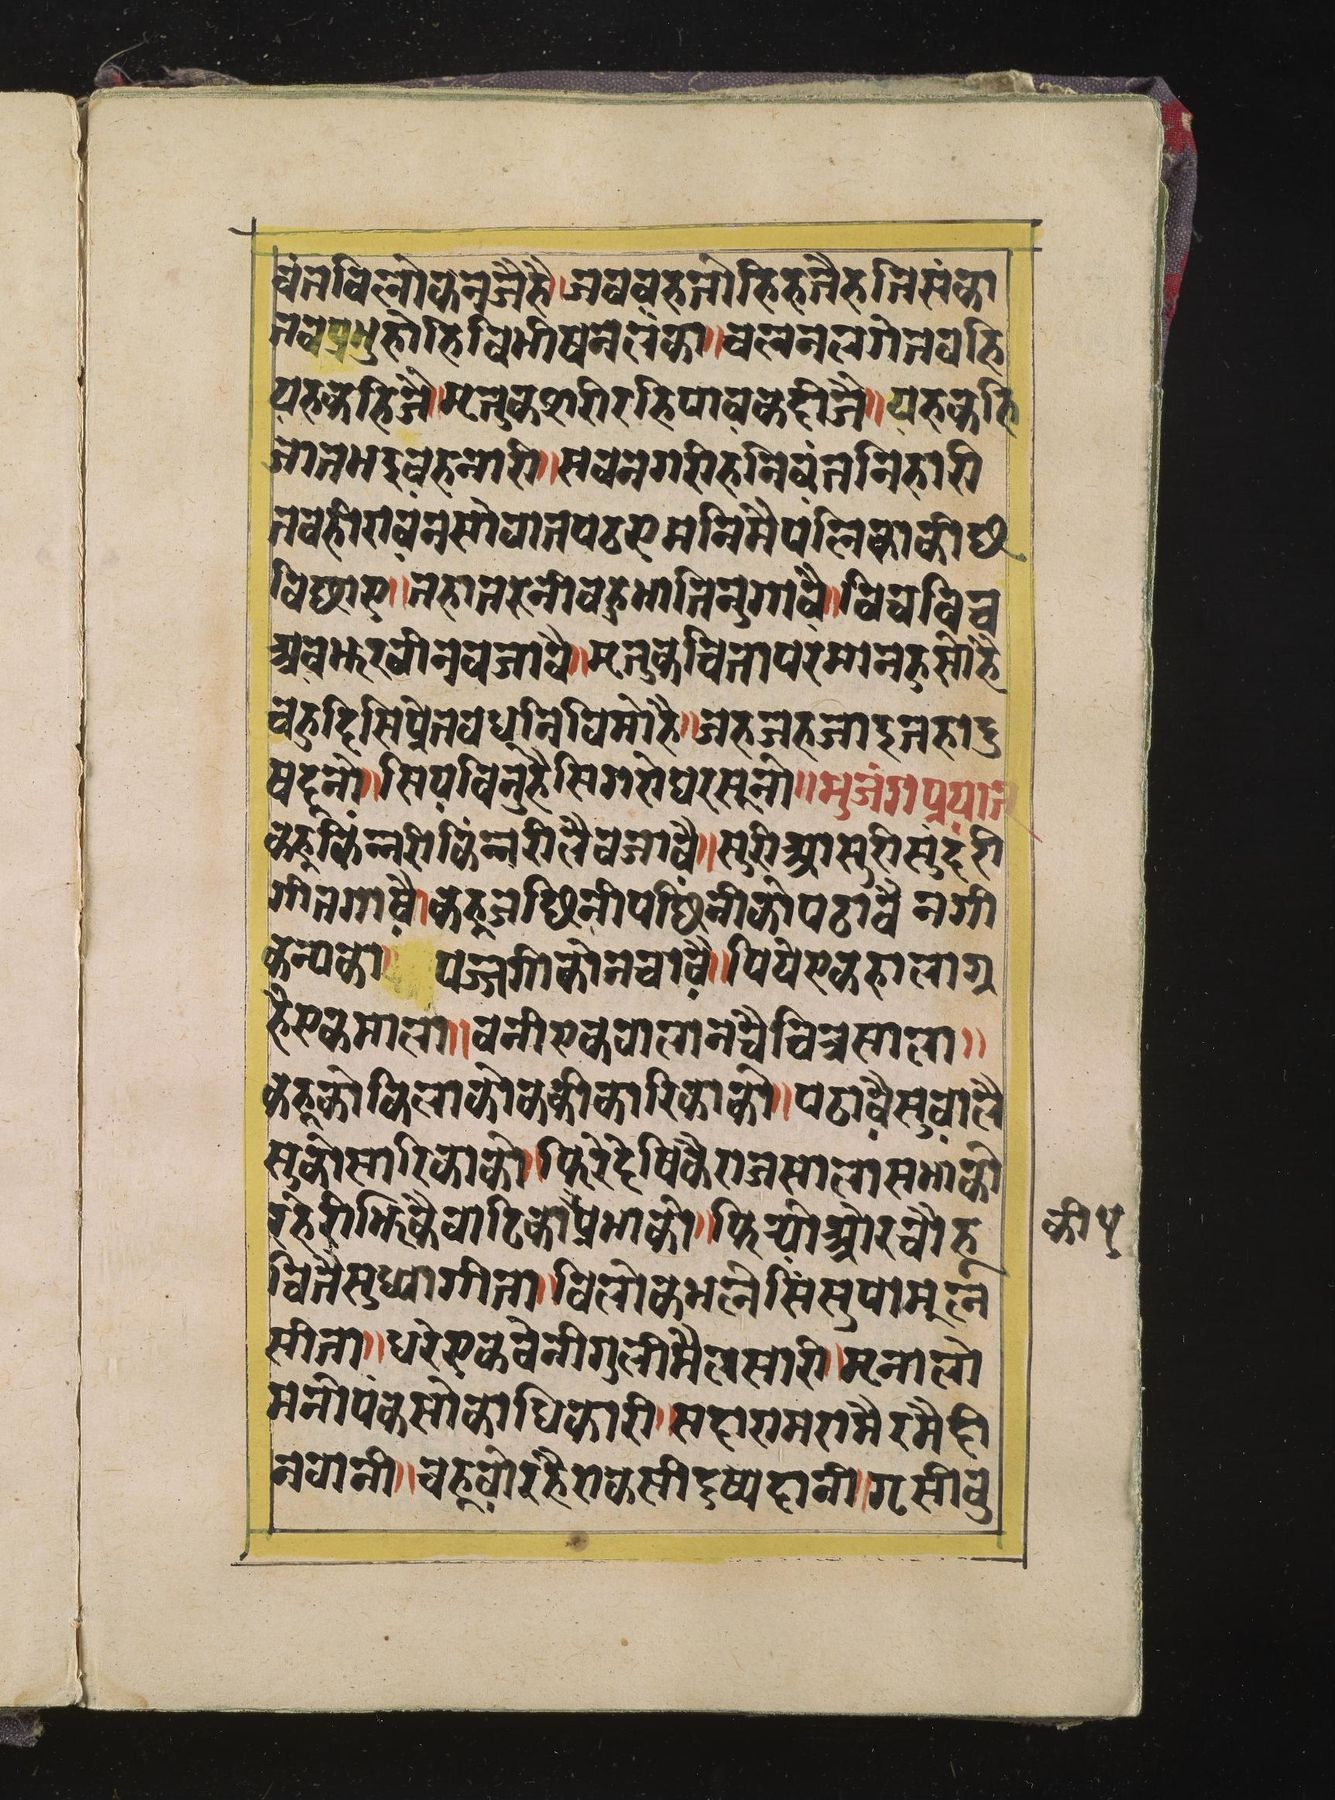 वंतविलोकनजैहै॥जबवहतोहिहतैहनिसंका
तबप्रभुहोहिविभीषनलंका॥चलनलगेजबहि
यहकहिजै॥मृतुकशरीरहिपावकदीजै॥यहकहि
जातभइवहनारी॥सबनगरीहनिवंतनिहारी
तबहीरावंनसोवतपठएमनिमैपलिकाकीछ
विछाए॥तहातरुनीबहुभातिनुगावै॥बिचबिच
आवझरवीनबजावै॥मृतुकचितापरमानहुसोहै
चहुदिसिप्रेतबधूनिविमोहै॥जहजहजाइतहादु
षदूनो॥सियविनुहैसिगरोघरसूनो॥भुजंगप्रयात
कहूकिंन्नरीकिंन्नरीलैबजावै॥सुरीआसुरीसुंदरी
गीतगावै॥कहूजछिनीपछिनीकोपठावै नगी
कन्यका पन्नगीकोनचावै॥पियेएकहालागु
हैएकमाला॥बनीएकबालानचैचित्रसाला॥
कहूकोकिलाकोककीकारिकाको॥पठावैसुवालै
सुकोसारिकाको॥फिरेदेषिकैराजसालासभाको
रहेरीझिकैवाटिकाप्रभाको॥फिर्योऔरचौह
चितैसुध्यगीता॥विलोकेभलेसिंसुपामूल
सीता॥धरेएकवेनीगुलीमैलसारी॥मृनालो
मनोपंकसोकाधिकारी॥सदारामरामैरमैदी
नबानी॥चहूवोरहैराकसीदुष्यदानी॥ग्रसीबु
कीप्र